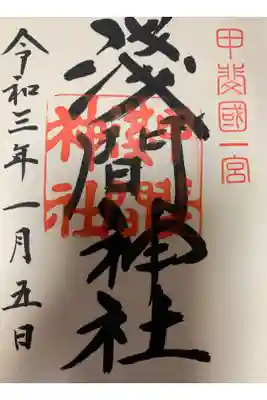 甲斐國一宮
浅間神社
淺間神社
令和三年一月五日